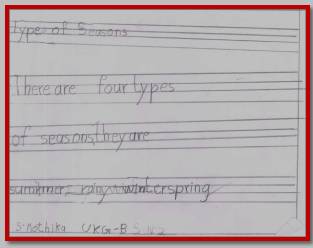 Types of Seasons
There are four types
of seasons, they are
summer, rainy, winter spring
S. nothika UKG-B